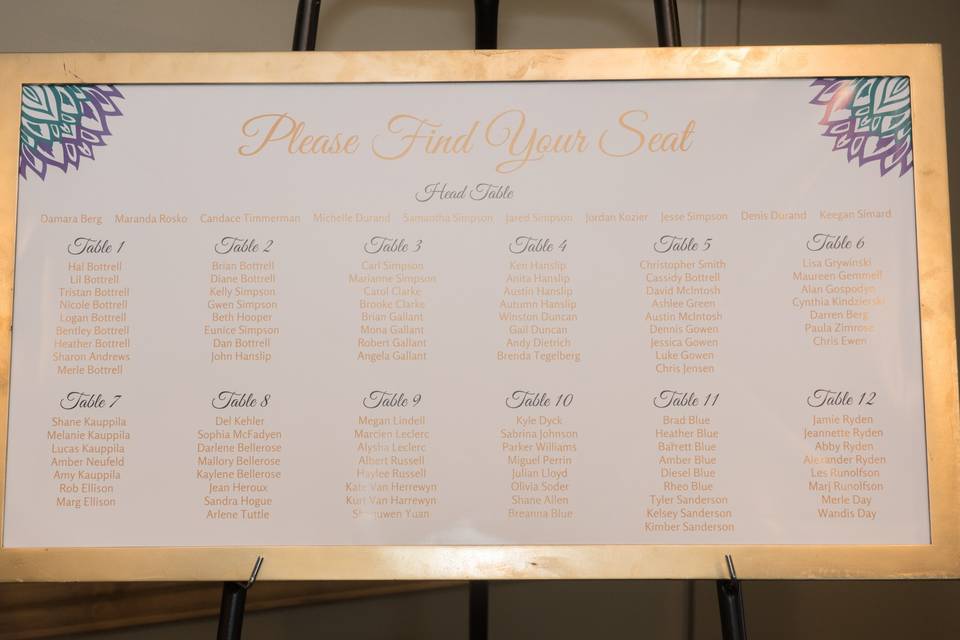 Please Find Your Seat
Head Table
Damara Berg Maranda Rosko Candace Timmerman Michelle Durand Samantha Simpson Jared Simpson Jordan Kozier Jesse Simpson Denis Durand Keegan Simard
Table 1
Hal Bottrell
Lil Bottrell
Tristan Bottrell
Nicole Bottrell
Logan Bottrell
Bentley Bottrell
Heather Bottrell
Sharon Andrews
Merle Bottrell
Table 2
Brian Bottrell
Diane Bottrell
Kelly Simpson
Gwen Simpson
Beth Hooper
Eunice Simpson
Dan Bottrell
John Hanslip
Table 3
Carl Simpson
Marianne Simpson
Carol Clarke
Brooke Clarke
Brian Gallant
Mona Gallant
Robert Gallant
Angela Gallant
Table 4
Ken Hanslip
Anita Hanslip
Austin Hanslip
Autumn Hanslip
Winston Duncan
Gail Duncan
Andy Dietrich
Brenda Tegelberg
Table 5
Christopher Smith
Cassidy Bottrell
David McIntosh
Ashlee Green
Austin McIntosh
Dennis Gowen
Jessica Gowen
Luke Gowen
Chris Jensen
Table 6
Lisa Grywinski
Maureen Gemmell
Alan Gospodyn
Cynthia Kindzierski
Darren Berg
Paula Zimrose
Chris Ewen
Table 7
Shane Kauppila
Melanie Kauppila
Lucas Kauppila
Amber Neufeld
Amy Kauppila
Rob Ellison
Marg Ellison
Table 8
Del Kehler
Sophia McFadyen
Darlene Bellerose
Mallory Bellerose
Kaylene Bellerose
Jean Heroux
Sandra Hogue
Arlene Tuttle
Table 9
Megan Lindell
Marcien Leclerc
Alysha Leclerc
Albert Russell
Haylee Russell
Kate Van Herrewyn
Kurt Van Harrewyn
Yuan
Table 10
Kyle Dyck
Sabrina Johnson
Parker Williams
Miguel Perrin
Julian Lloyd
Olivia Soder
Shane Allen
Breanna Blue
Table 11
Brad Blue
Heather Blue
Barrett Blue
Amber Blue
Diesel Blue
Rheo Blue
Tyler Sanderson
Kelsey Sanderson
Kimber Sanderson
Table 12
Jamie Ryden
Jeannette Ryden
Abby Ryden
Alexander Ryden
Les Runolfson
Marj Runolfson
Merle Day
Wandis Day